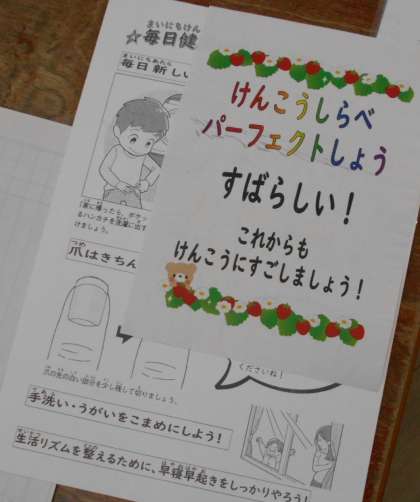 まいにちけん
☆毎日健
まいにちあたら
毎日新しい
けんこうしらべ
パーフェクトしょう
すばらしい！
これからも
けんこうにすごしましょう！
「家に帰ったら、ポケッ
るハンカチを洗濯に出す
けましょう。
つめ
爪はきちん
爪の先の白い部分を少し残して切りましょう。
くださいね！
手洗い・うがいをこまめにしよう！
生活リズムを整えるために、早寝早起きをしっかりやろう！